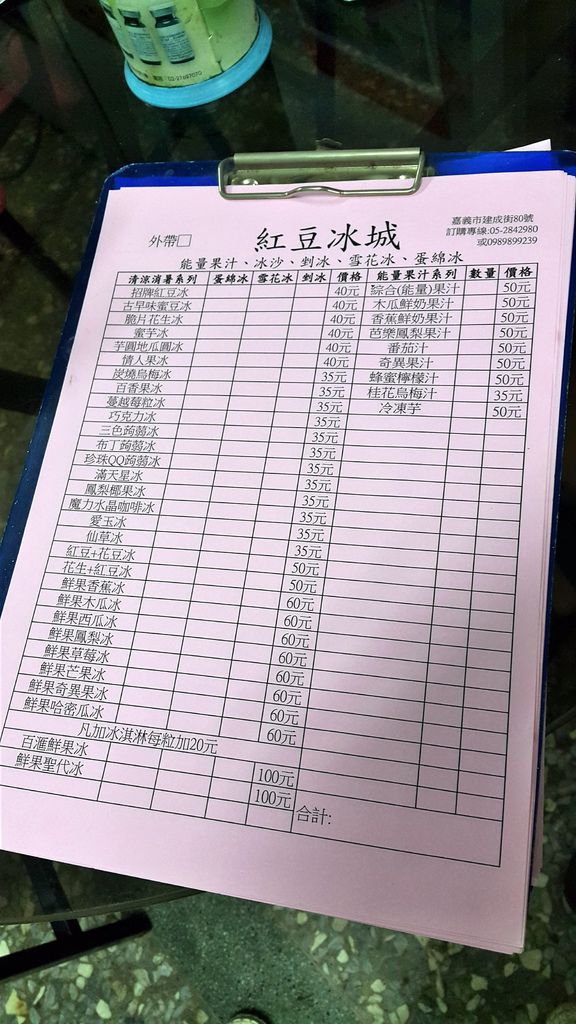 電話:02-27697070
嘉義市建成街80號
訂購專線:05-2842980
或0989899239
外帶□
紅豆冰城
能量果汁、冰沙、剉冰、雪花冰、蛋綿冰
清涼消暑系列 蛋綿冰 雪花冰 剉冰 價格 能量果汁系列 數量 價格
招牌紅豆冰 40元 綜合(能量)果汁 50元
古早味蜜豆冰 40元 木瓜鮮奶果汁 50元
脆片花生冰 40元 香蕉鮮奶果汁 50元
蜜芋冰 40元 芭樂鳳梨果汁 50元
芋圓地瓜圓冰 40元 番茄汁 50元
情人果冰 40元 奇異果汁 50元
炭燒烏梅冰 35元 蜂蜜檸檬汁 50元
百香果冰 35元 桂花烏梅汁 35元
蔓越莓粒冰 35元 冷凍芋 50元
巧克力冰 35元
三色蒟蒻冰 35元
布丁蒟蒻冰 35元
珍珠QQ蒟蒻冰 35元
滿天星冰 35元
鳳梨椰果冰 35元
魔力水晶咖啡冰 35元
愛玉冰 35元
仙草冰 35元
紅豆+花豆冰 50元
花生+紅豆冰 50元
鮮果香蕉冰 60元
鮮果木瓜冰 60元
鮮果西瓜冰 60元
鮮果鳳梨冰 60元
鮮果草莓冰 60元
鮮果芒果冰 60元
鮮果奇異果冰 60元
鮮果哈密瓜冰 60元
凡加冰淇淋每粒加20元
百滙鮮果冰 100元
鮮果聖代冰 100元
合計: